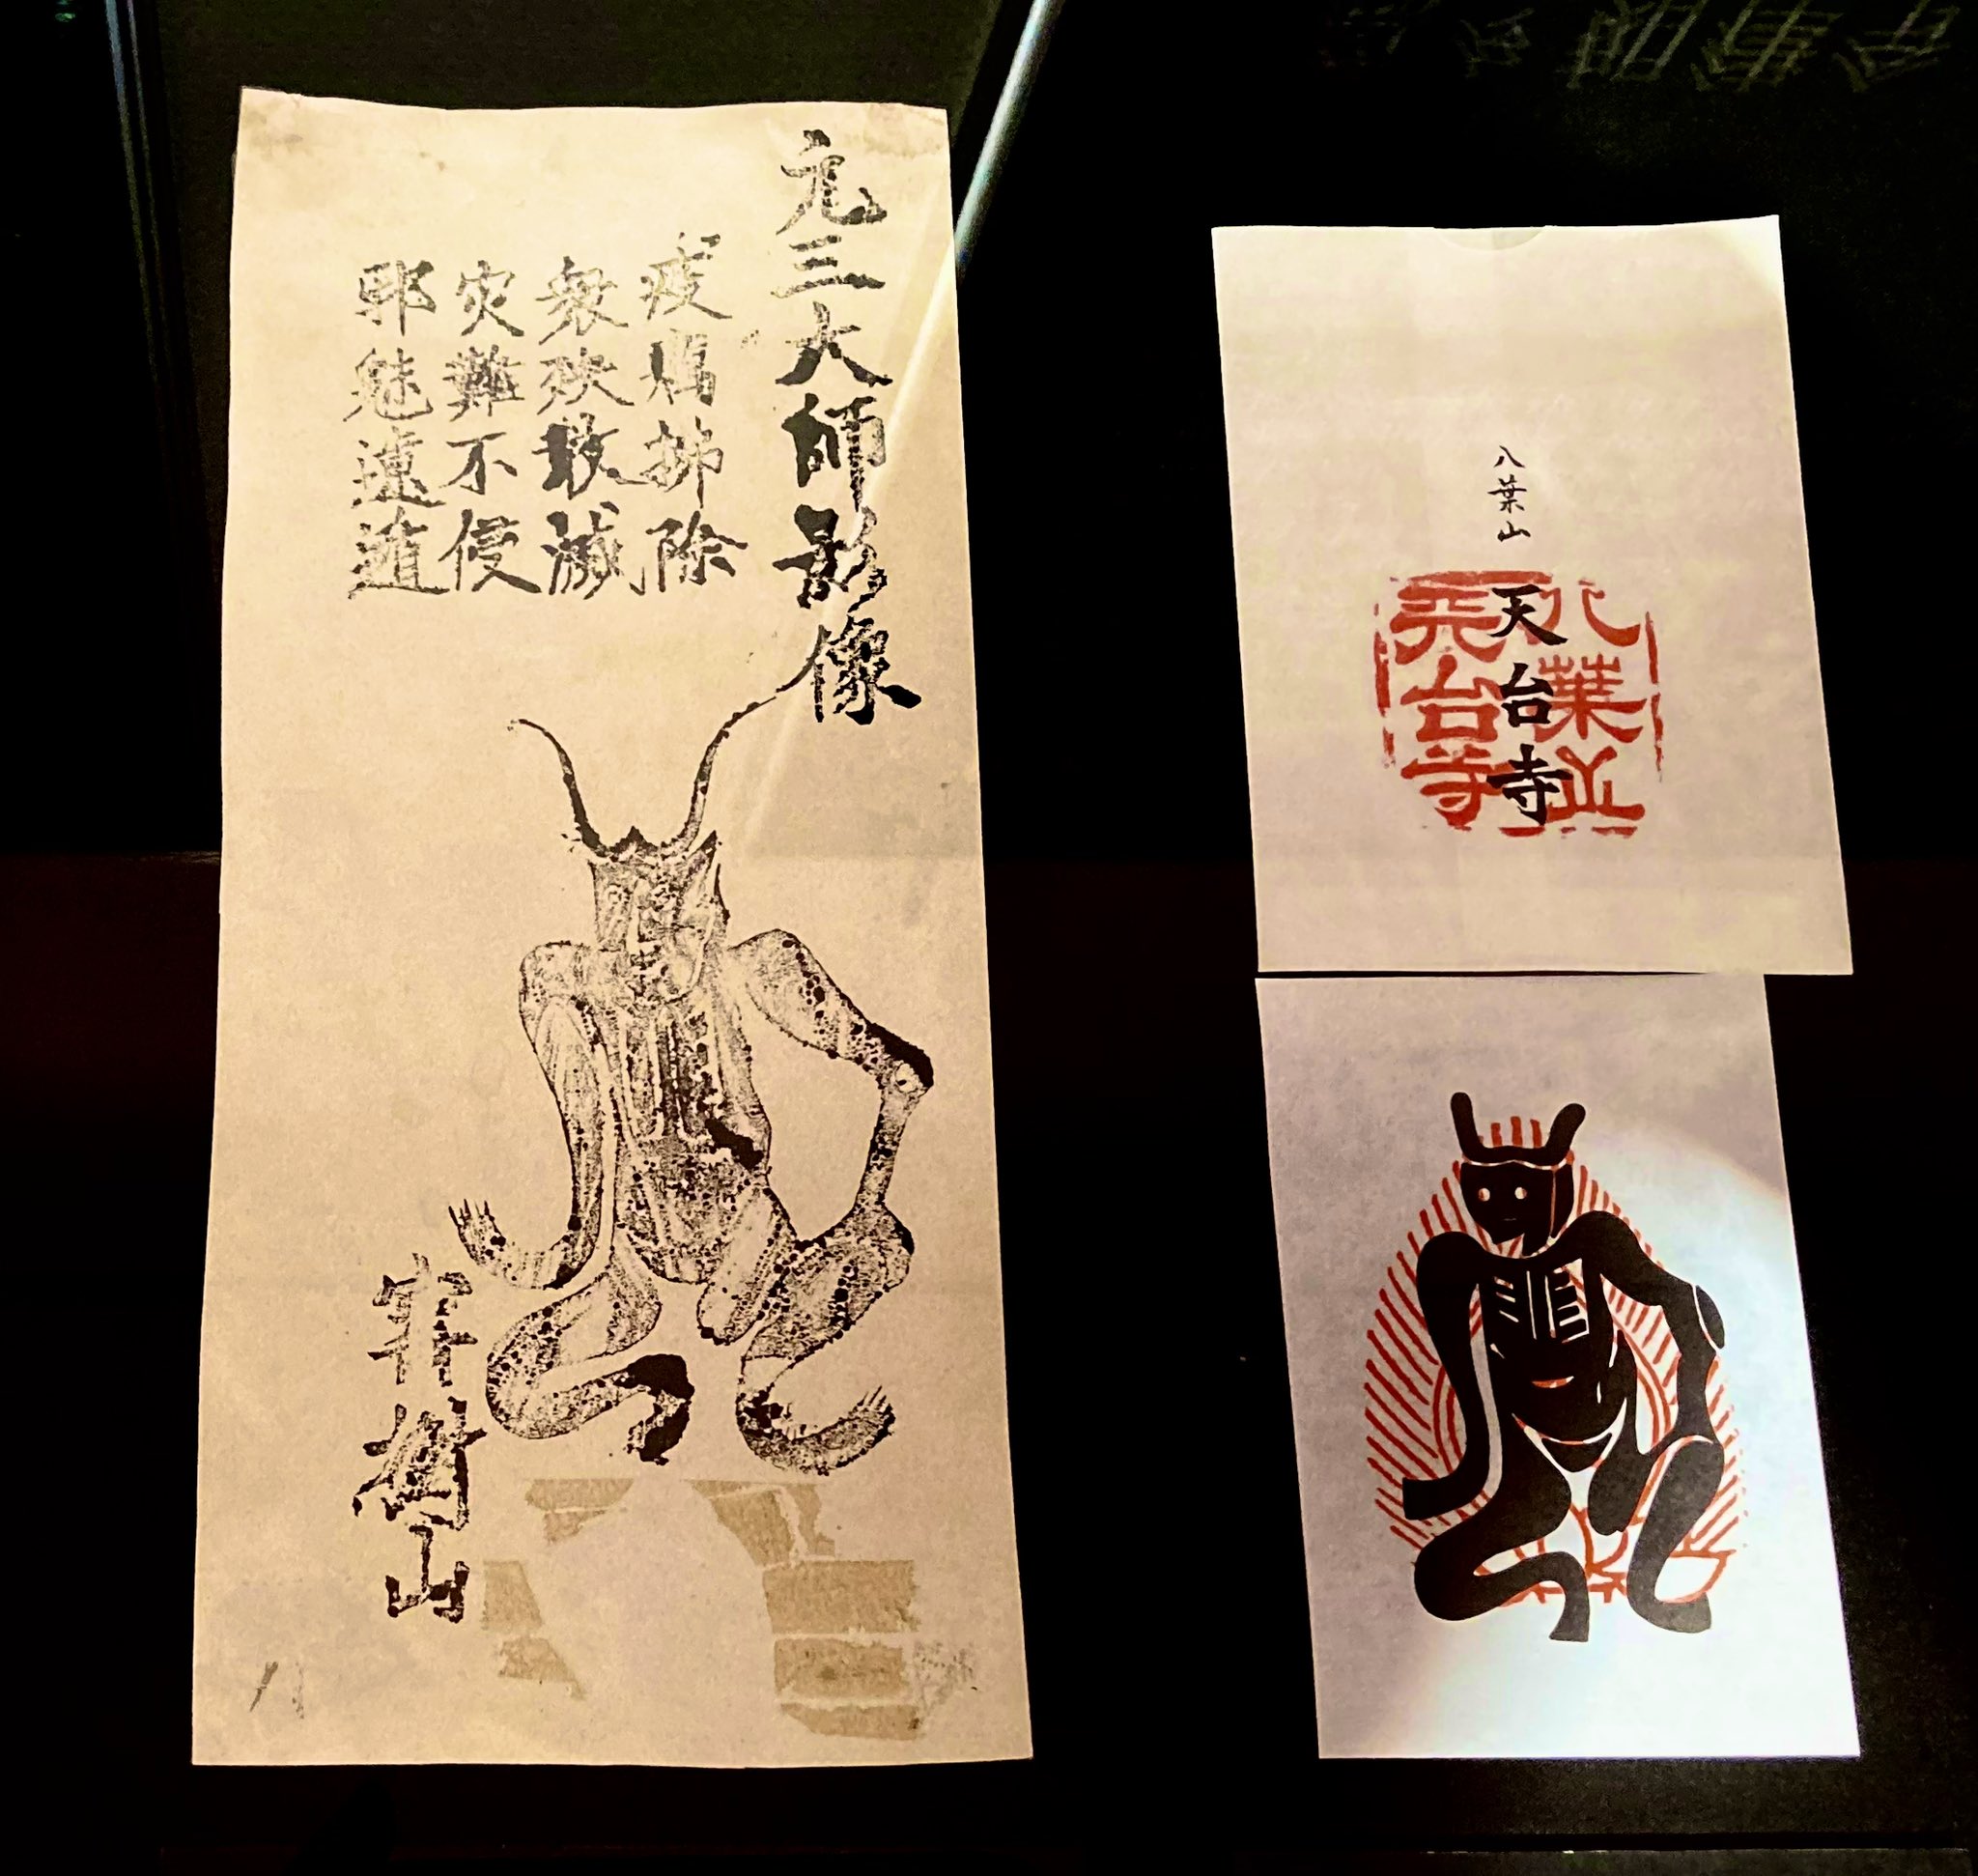 元三大師影像
疫厲排除
衆殃散滅
灾難不侵
邪魅遠遁
山
八葉山
天台寺
八葉山
天台寺